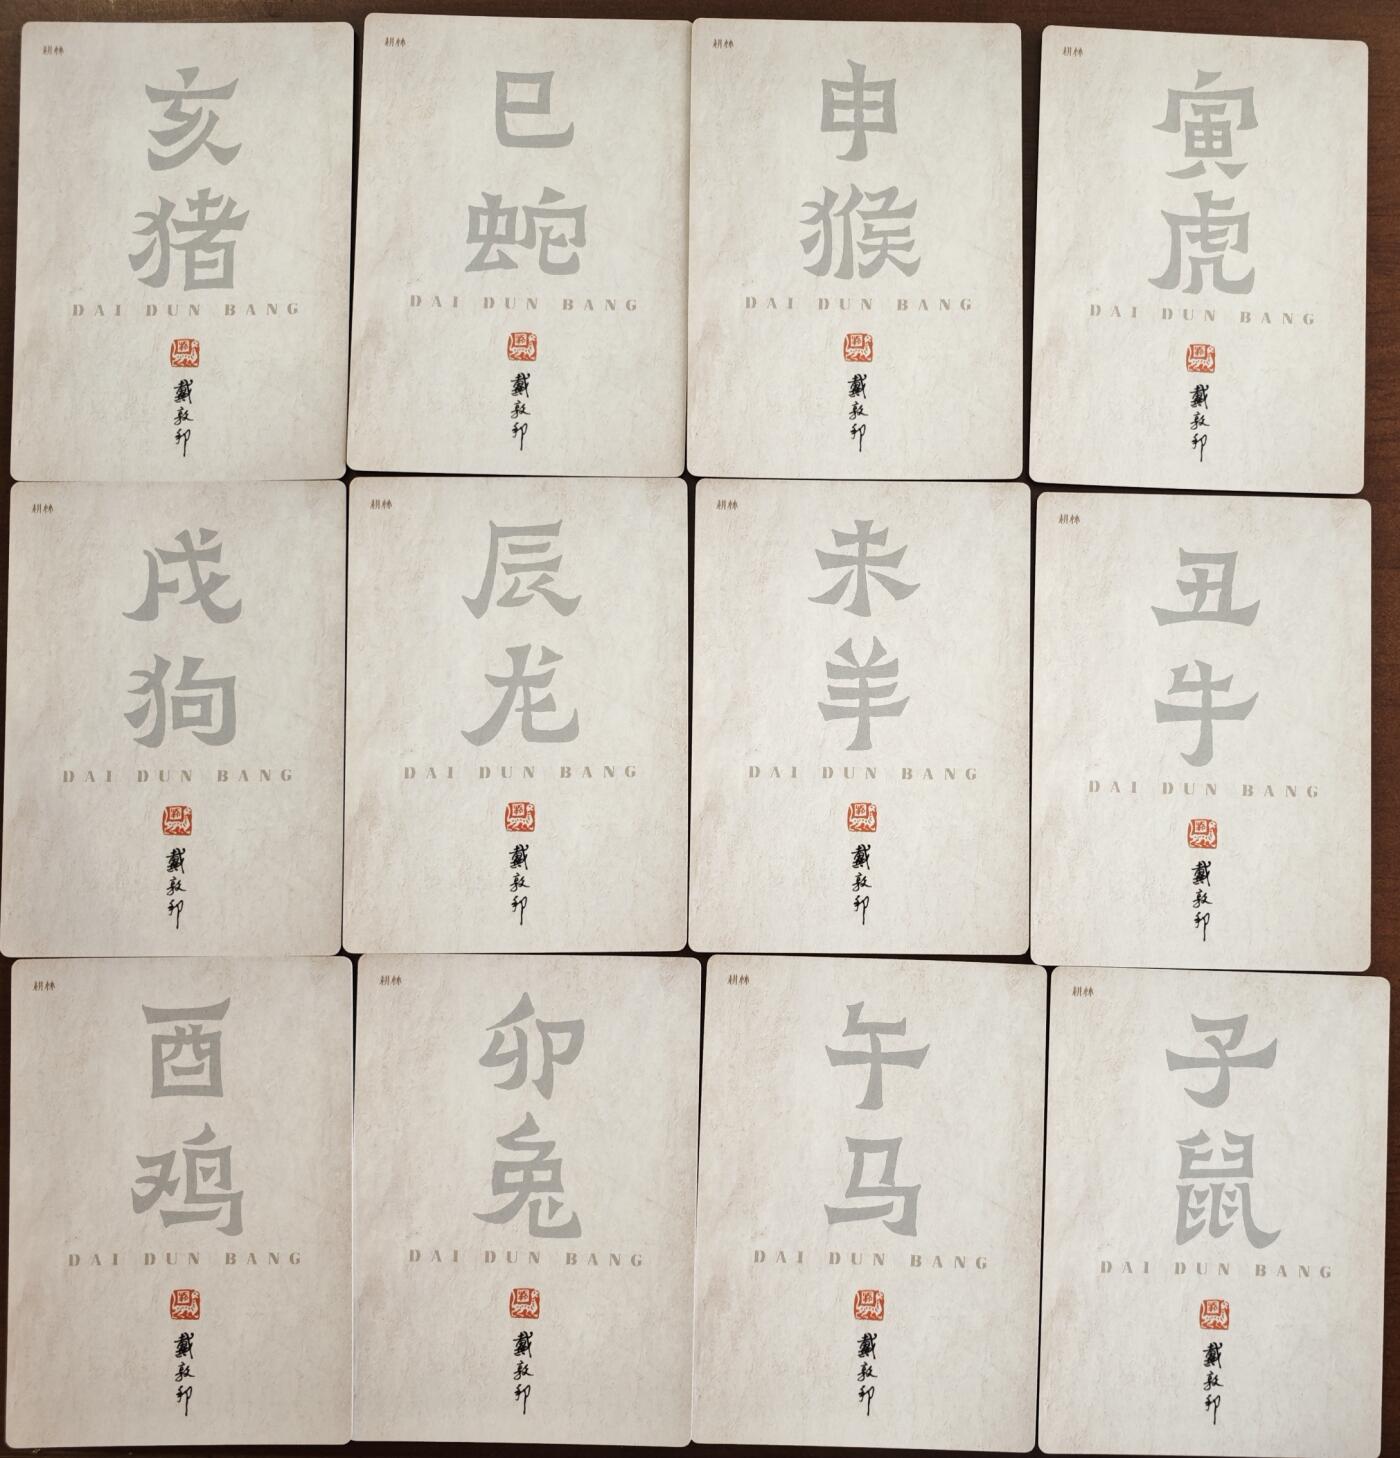 耕林
亥
猪
DAI DUN BANG
戴敦邦
耕林
巳
蛇
DAI DUN BANG
戴敦邦
耕林
申
猴
DAI DUN BANG
戴敦邦
耕林
寅
虎
DAI DUN BANG
戴敦邦
耕林
戌
狗
DAI DUN BANG
戴敦邦
耕林
辰
龙
DAI DUN BANG
戴敦邦
耕林
未
羊
DAI DUN BANG
戴敦邦
耕林
丑
牛
DAI DUN BANG
戴敦邦
耕林
酉
鸡
DAI DUN BANG
戴敦邦
耕林
卯
兔
DAI DUN BANG
戴敦邦
耕林
午
马
DAI DUN BANG
戴敦邦
耕林
子
鼠
DAI DUN BANG
戴敦邦